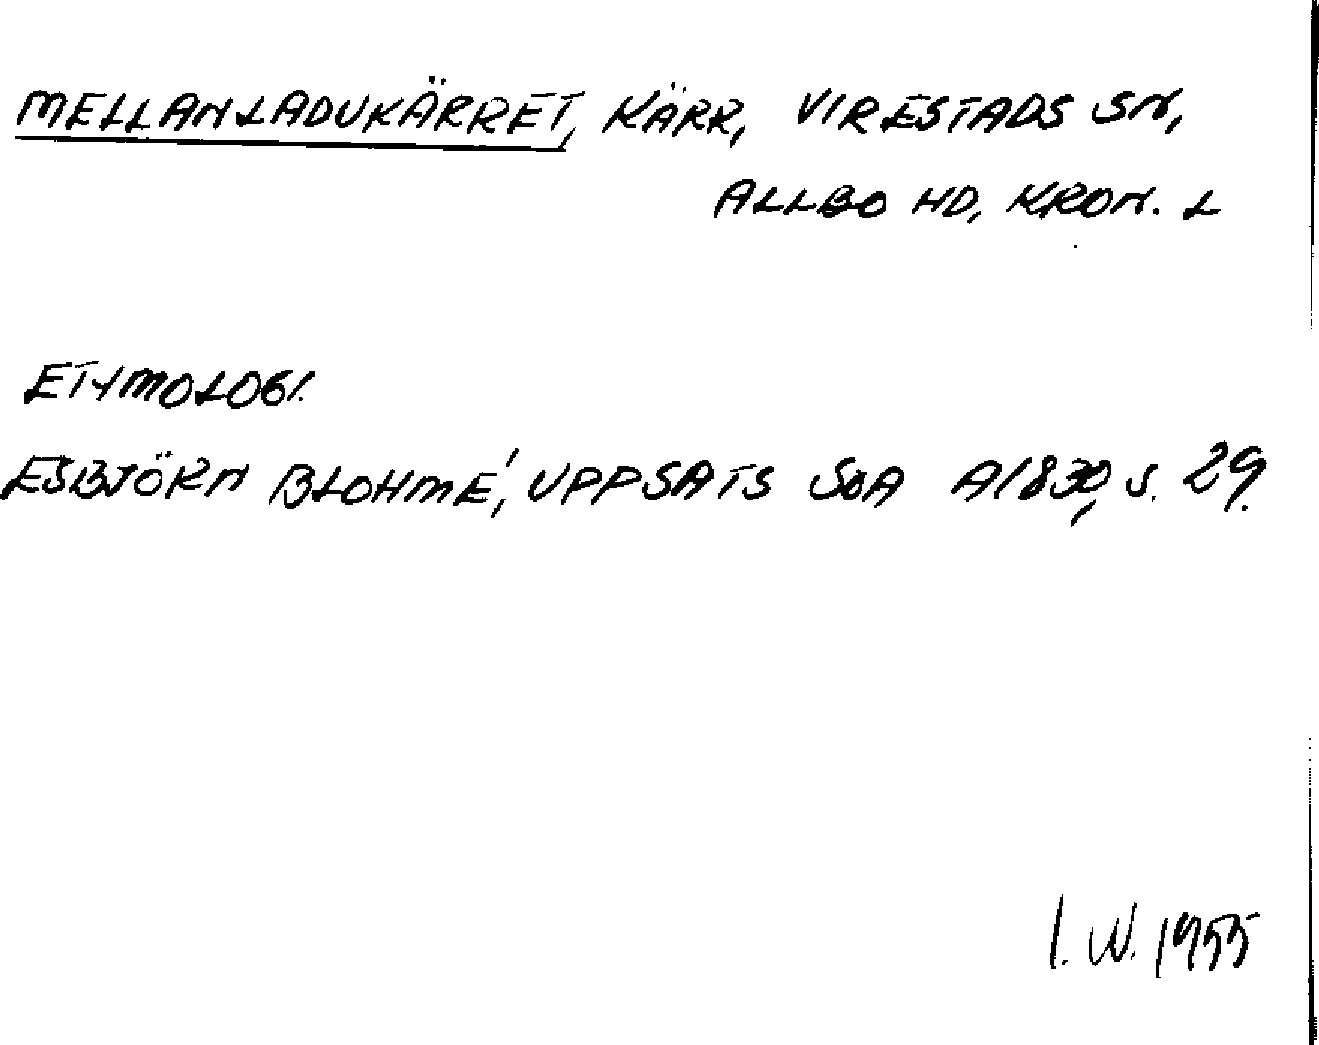 MELLANLADUKÄRRET, KÄRR, VIRESTADS SN,
ALLBO HD, KRON. L
ETYMOLOGI.
ESBJÖRN BLOHMÉ, UPPSATS SOA A1830, S. 29.
I. W. 1955